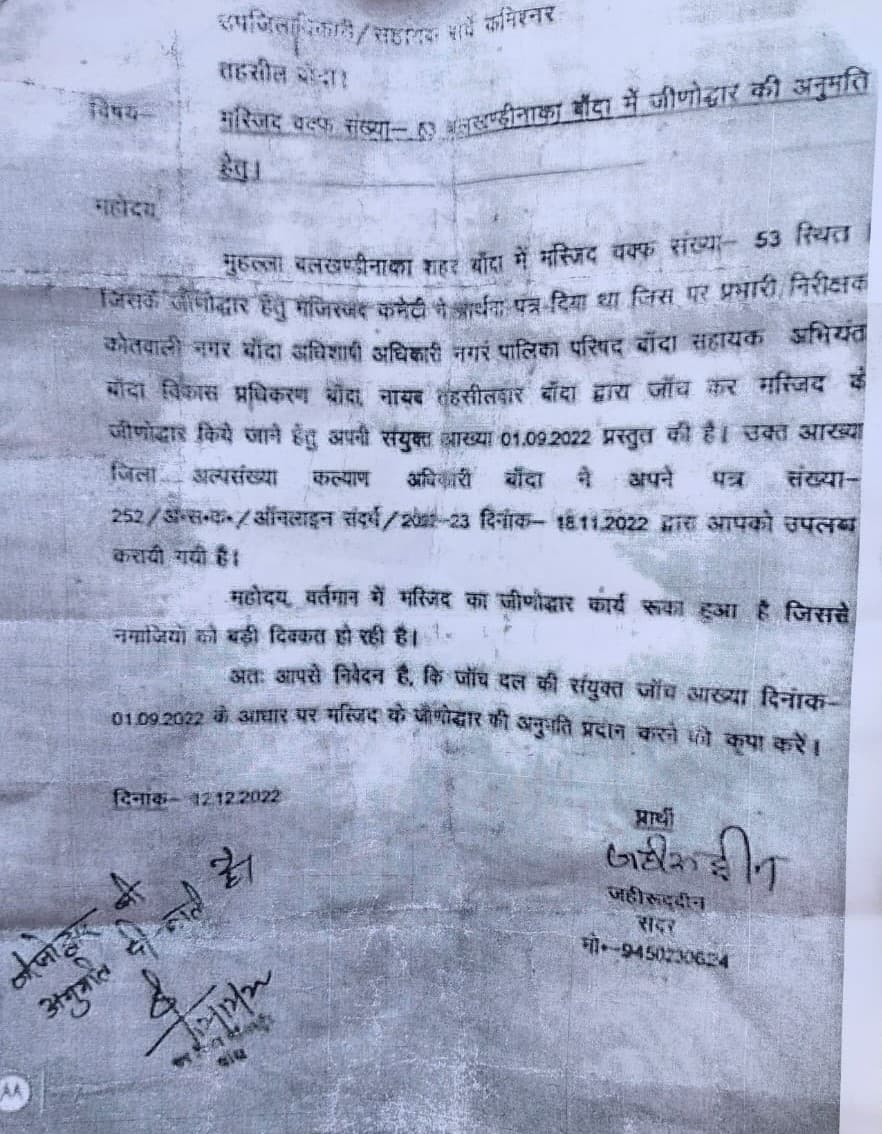 उपजिलाधिकारी/सहायक सर्वे कमिश्नर
तहसील बाँदा।
विषय-
मस्जिद वक्फ संख्या- 53 बलखण्डीनाका बाँदा में जीणोद्धार की अनुमति
हेतु।
महोदय
मुहल्ला बलखण्डीनाका शहर बाँदा में मस्जिद वक्फ संख्या- 53 स्थित
जिसके जीणोद्धार हेतु मजिस्जद कमेटी ने प्रार्थना पत्र दिया था जिस पर प्रभारी निरीक्षक
कोतवाली नगर बाँदा अधिशाषी अधिकारी नगर पालिका परिषद बाँदा सहायक अभियंत
बाँदा विकास प्रधिकरण बाँदा, नायब तहसीलदार बाँदा द्वारा जाँच कर मस्जिद के
जीणोद्धार किये जाने हेतु अपनी संयुक्त आख्या 01.09.2022 प्रस्तुत की है। उक्त आख्या
जिला अल्पसंख्या कल्याण अधिकारी बाँदा ने अपने पत्र संख्या-
252/अ०स०क०/ऑनलाइन संदर्भ/2022-23 दिनांक- 18.11.2022 द्वारा आपको उपलब्ध
करायी गयी है।
महोदय, वर्तमान में मस्जिद का जीणोद्धार कार्य रूका हुआ है जिससे
नमाजियों को बड़ी दिक्कत हो रही है।
अतः आपसे निवेदन है, कि जाँच दल की संयुक्त जाँच आख्या दिनांक-
01.09.2022 के आधार पर मस्जिद के जीणोद्धार की अनुमति प्रदान करने की कृपा करें।
दिनांक- 12.12.2022
प्रार्थी
जहीरुद्दीन
जहीरूददीन
सदर
मो०-9450230624
जीणोद्धार की
अनुमति दी जाती है।
बांदा
AA